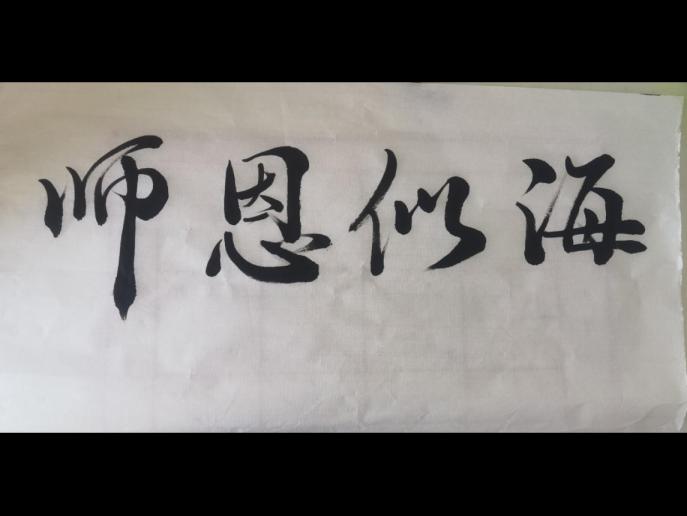 师恩似海